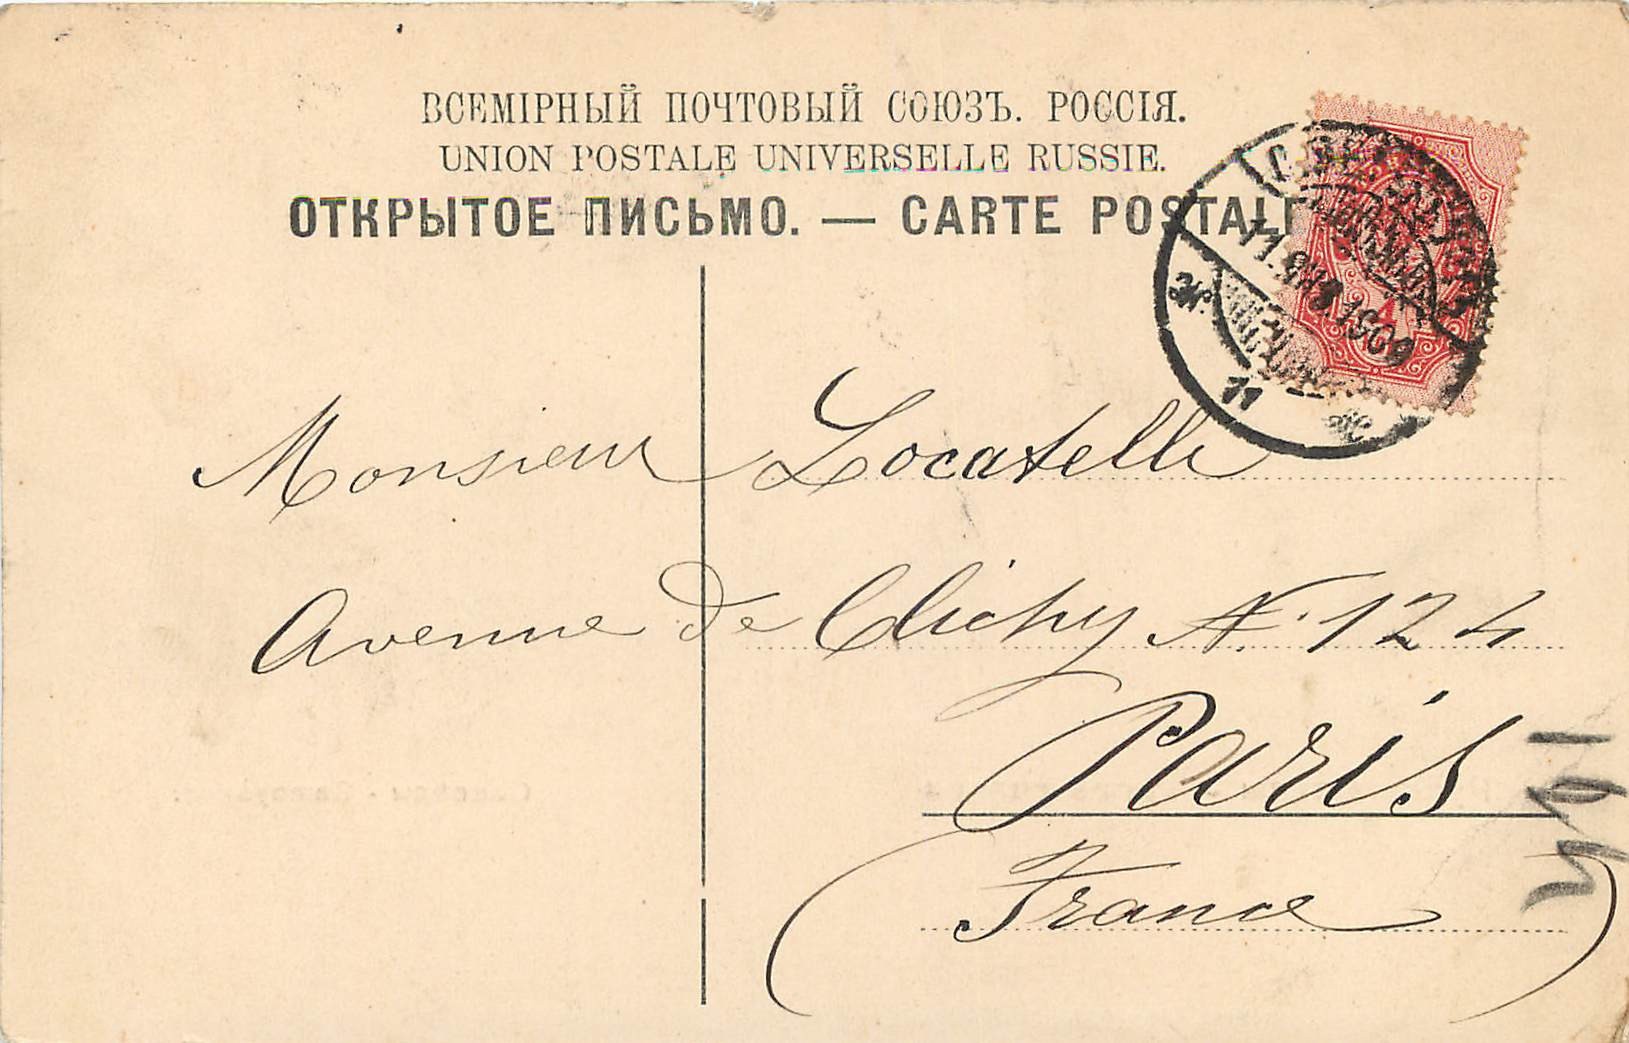 ВСЕМІРНЫЙ ПОЧТОВЫЙ СОЮЗЪ. РОССІЯ.
UNION POSTALE UNIVERSELLE RUSSIE.
ОТКРЫТОЕ ПИСЬМО. — CARTE POSTALE
11.
1909
11
Monsieur Locatelli
Avenue de Clichy N. 124
Paris
France